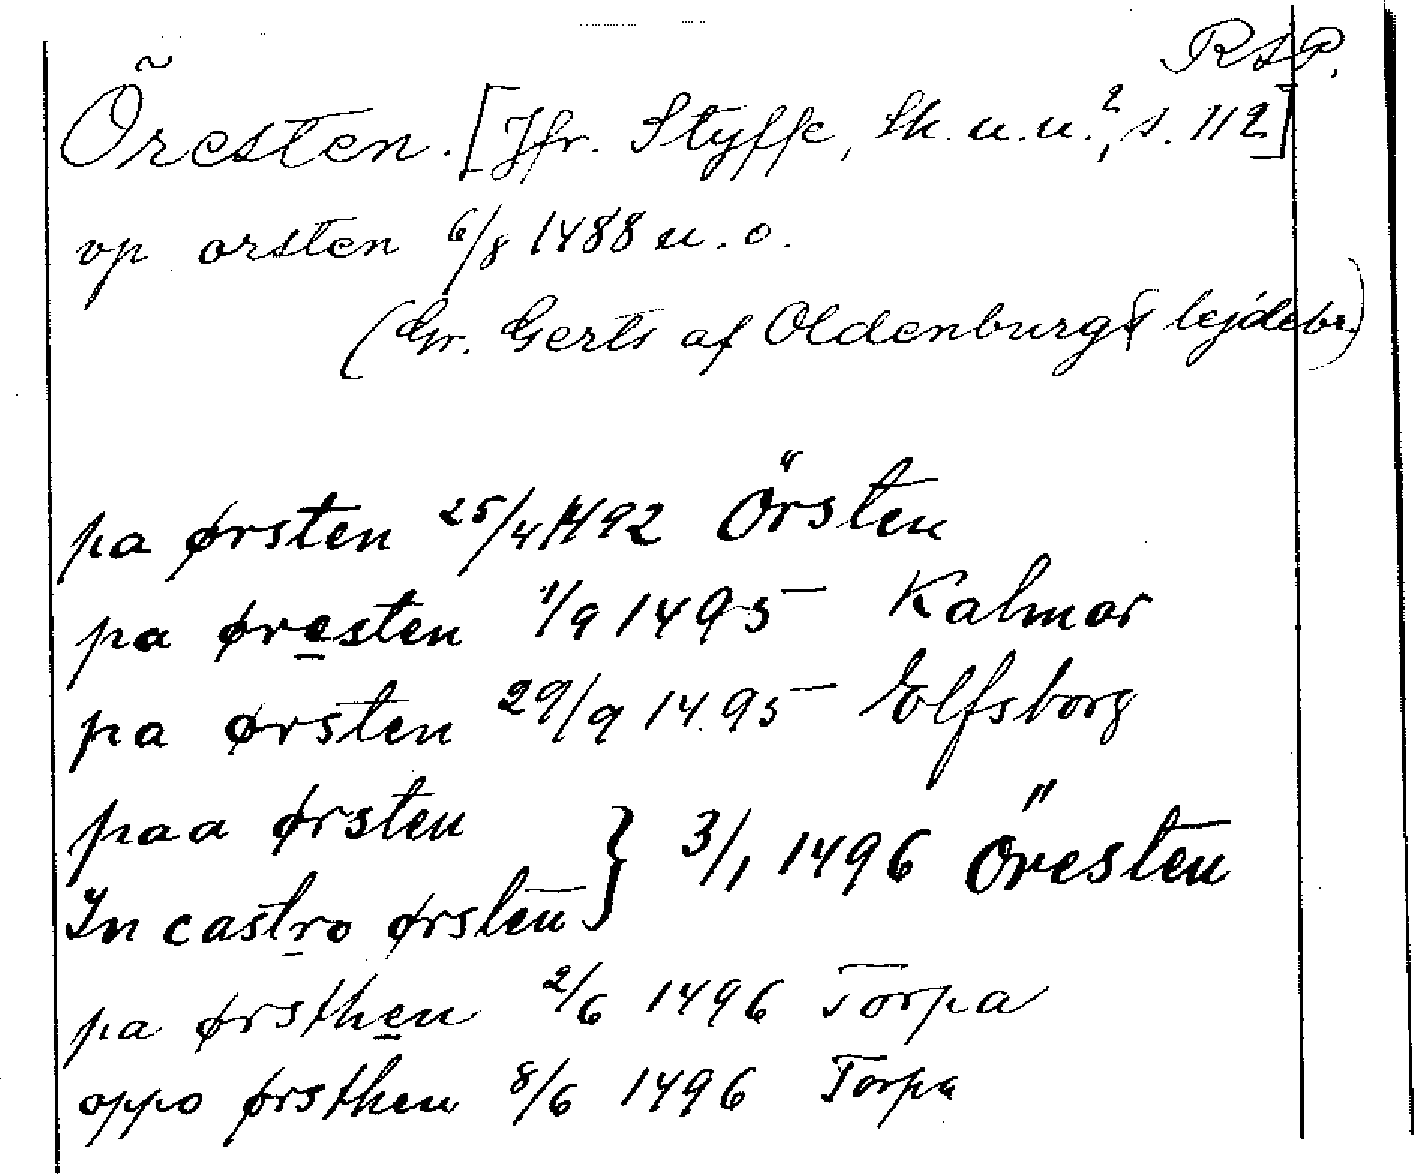 RAP.
Öresten. [Jfr. Styffe, Sk. u. u.², s. 112]
vp orsten 6/8 1488 u. o.
(Gr. Gerts af Oldenburgs lejdebr.)
pa ørsten 25/4 1492 Örsten
pa øresten 1/9 1495 Kalmar
pa ørsten 29/9 1495 Elfsborg
paa ørsten } 3/1 1496 Öresten
In castro ørsten
pa ørsthen 2/6 1496 Torpa
oppo ørsthen 8/6 1496 Torpa